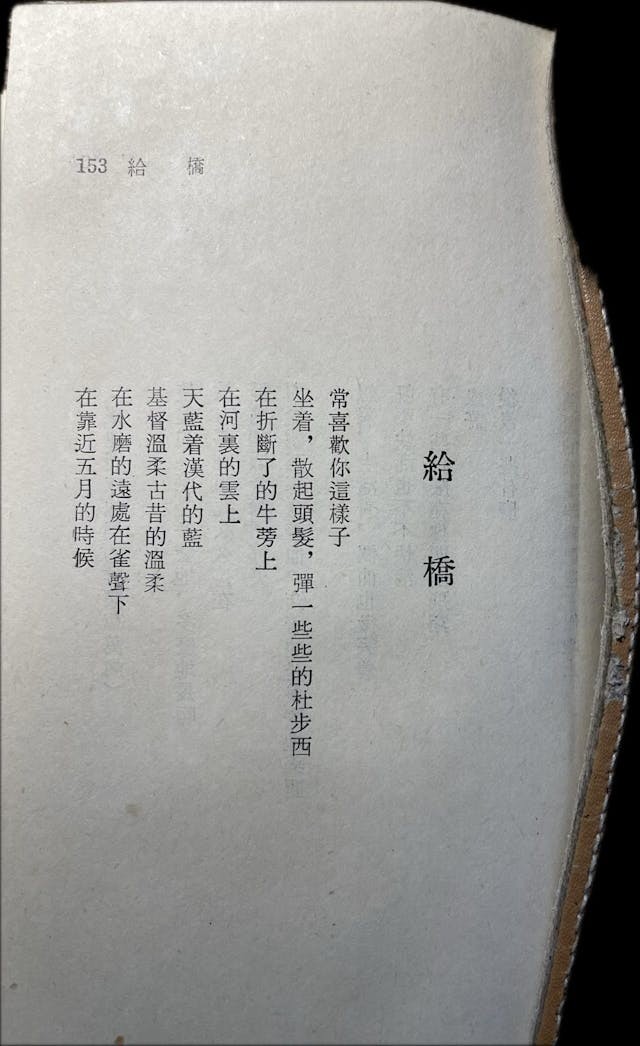 153 給 橋
給 橋
常喜歡你這樣子
坐着，散起頭髮，彈一些些的杜步西
在折斷了的牛蒡上
在河裏的雲上
天藍着漢代的藍
基督溫柔古昔的溫柔
在水磨的遠處在雀聲下
在靠近五月的時候